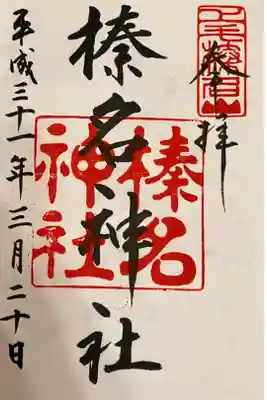 奉拝
榛名神社
榛名
神社
平成三十一年三月二十日